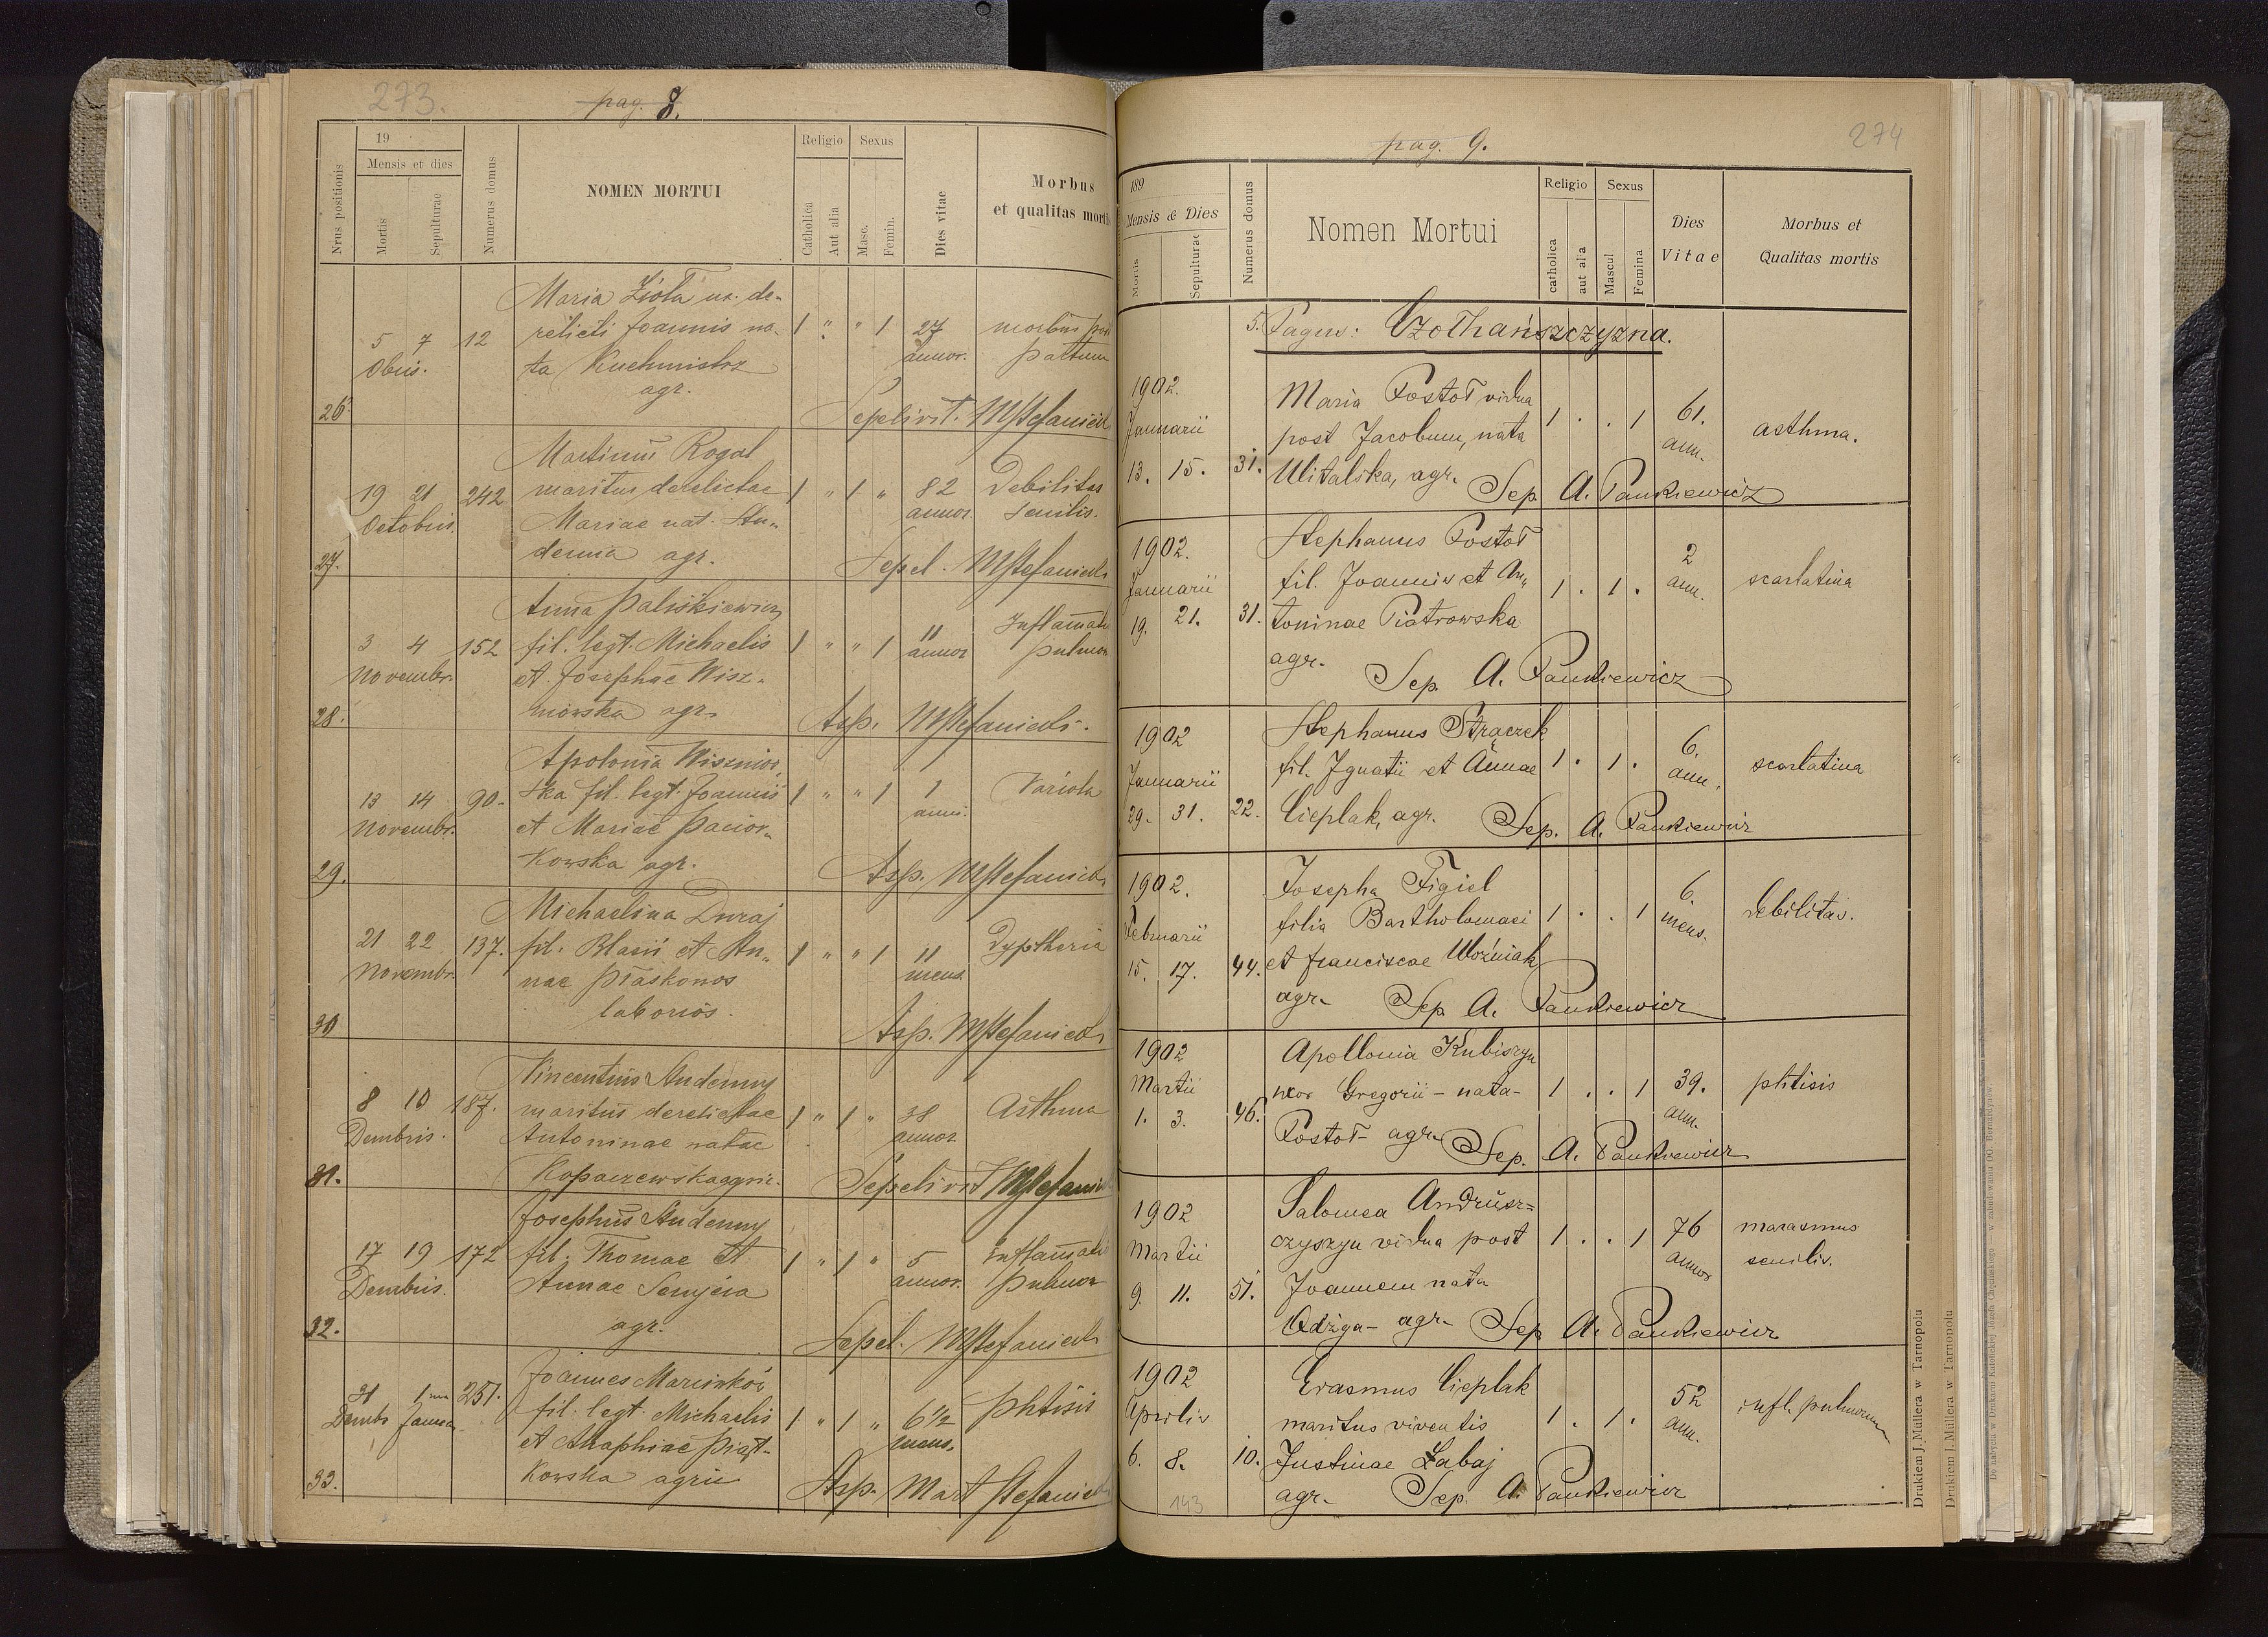 273.
pag. 8.
Nrus positionis
19
Mensis et dies
Mortis
Sepulturae
Numerus domus
NOMEN MORTUI
Religio
Catholica
Aut alia
Sexus
Masc.
Femin.
Dies vitae
Morbus
et qualitas mortis
Maria Zioła ux. de-
5 7 12 relicti Joannis na- 1 " " 1 27 morbus post
Obris. ta Kuchmistrz annor. partum
agr.
26. Sepelivit. MStefanicki
Martinus Rogal
19 21 242 maritus derelictae 1 " 1 " 82 Debilitas
Octobris. Mariae nat. Stu- annor. senilis.
denna agr.
27. Sepel. MStefanicki
Anna Paliskiewicz
3 4 152 fil. legt. Michaelis 1 " " 1 11 Inflamatio
Novembr. et Josephae Wisz- annor pulmon
niowska agr.
28. Asp. MStefanicki.
Apolonia Wisznio-
13 14 90- ska fil. legt. Joannis 1 " " 1 1 Variola
Novembr. et Mariae Pacior- anni.
kowska agr.
29. Asp. MStefanicki
Michaelina Duraj
21 22 137. fil. Blasii et An- 1 " " 1 11 Dyptheria
Novembr. nae Płaskonos mens.
laborios.
30 Asp. MStefanicki
Vincentius Studenny
8 10 187. maritus derelictae 1 " 1 " 38 Asthma
Dembris. Antoninae natae annor
Kopaczewska agric.
31. Sepelivit MStefanicki
Josephus Studenny
17 19 172 fil. Thomae et 1 " 1 " 5 Inflamatio
Dembris. Annae annor. pulmon
agr.
32. Sepel. MStefanicki
Joannes
31 1ma 251. fil. legt. Michaelis 1 " 1 " 6 1/2 Phtisis
Dembr Januar et Agaphiae Piąt- mens.
kowska agric
33. Asp. Mart Stefanicki
274
pag. 9.
189
Mensis & Dies
Mortis
Sepulturae
Numerus domus
Nomen Mortui
Religio
catholica
aut alia
Sexus
Mascul
Femina
Dies
Vitae
Morbus et
Qualitas mortis
5. Pagus: Czołhańszczyzna.
1902. Maria Postoł vidua 61.
Januarii post Jacobum, nata 1 . . 1 ann. asthma.
13. 15. 31. Witalska, agr. Sep A. Pankiewicz
1902. Stephanus Postoł 2
Januarii fil. Joannis et An- 1 . 1 . ann. scarlatina
19. 21. 31. toninae Piotrowska
agr. Sep. A. Pankiewicz
1902 Stephanus Strączek 6.
Januarii fil. Ignatii et Annae 1 . 1 . ann. scarlatina
29. 31. 22. Cieplak, agr. Sep. A. Pankiewicz
1902. Josepha Figiel 6.
Februarii filia Bartholomaei 1 . . 1 mens. debilitas.
15. 17. 44. et Franciscae Woźniak
agr. Sep A. Pankiewicz
1902 Apollonia Kubiszyn
Martii uxor Gregorii - nata- 1 . . 1 39. phtisis
1. 3. 46. Postoł- agr. ann.
Sep. A. Pankiewicz
1902 Salomea Andrusz=
Martii czyszyn vidua post 1 . . 1 76 marasmus
9. 11. 51. Joannem nata annor senilis.
Odżga- agr. Sep A. Pankiewicz
1902 Erasmus Cieplak 52
Aprilis maritus viventis 1 . 1 . ann. infl. pulmonum
6. 8. 10. Justinae Łabaj
agr. Sep. A. Pankiewicz
143
Drukiem J. Müllera w Tarnopolu
Drukiem J. Müllera w Tarnopolu